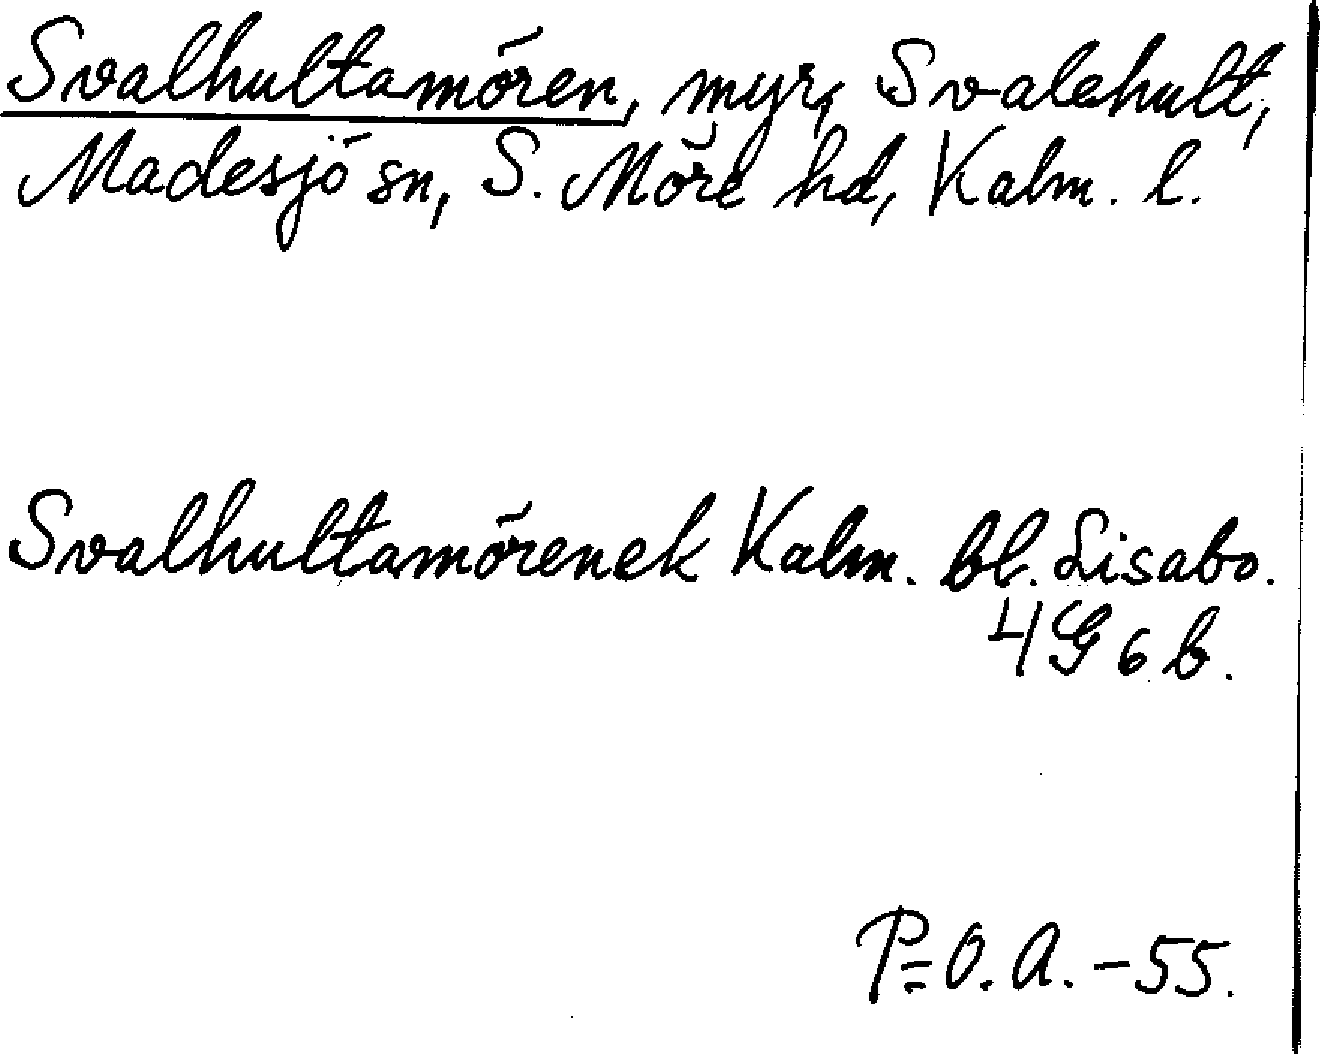 Svalhultamören, myr, Svalehult,
Madesjö sn, S. Möre hd, Kalm. l.
Svalhultamörenek Kalm. bl. Lisabo.
4G6b.
P=O.A.-55.